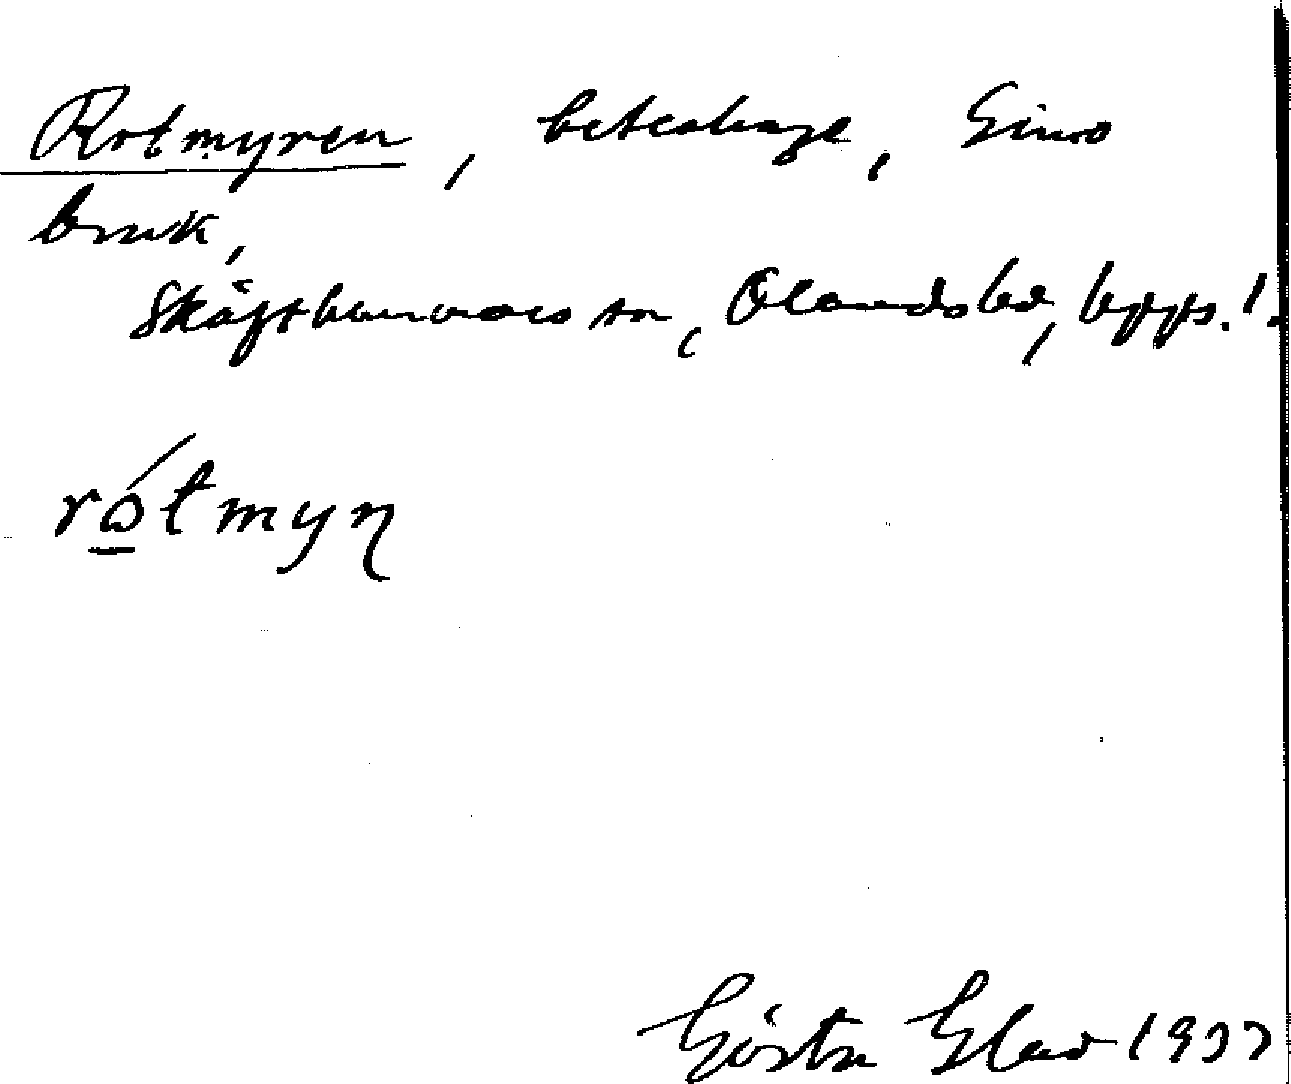 Rotmyren, beteshage, Gimo
bruk,
Skäfthammars sn, Olands hd, Upps. l.
rώ̲tmyn̡
Gösta Glad 1937